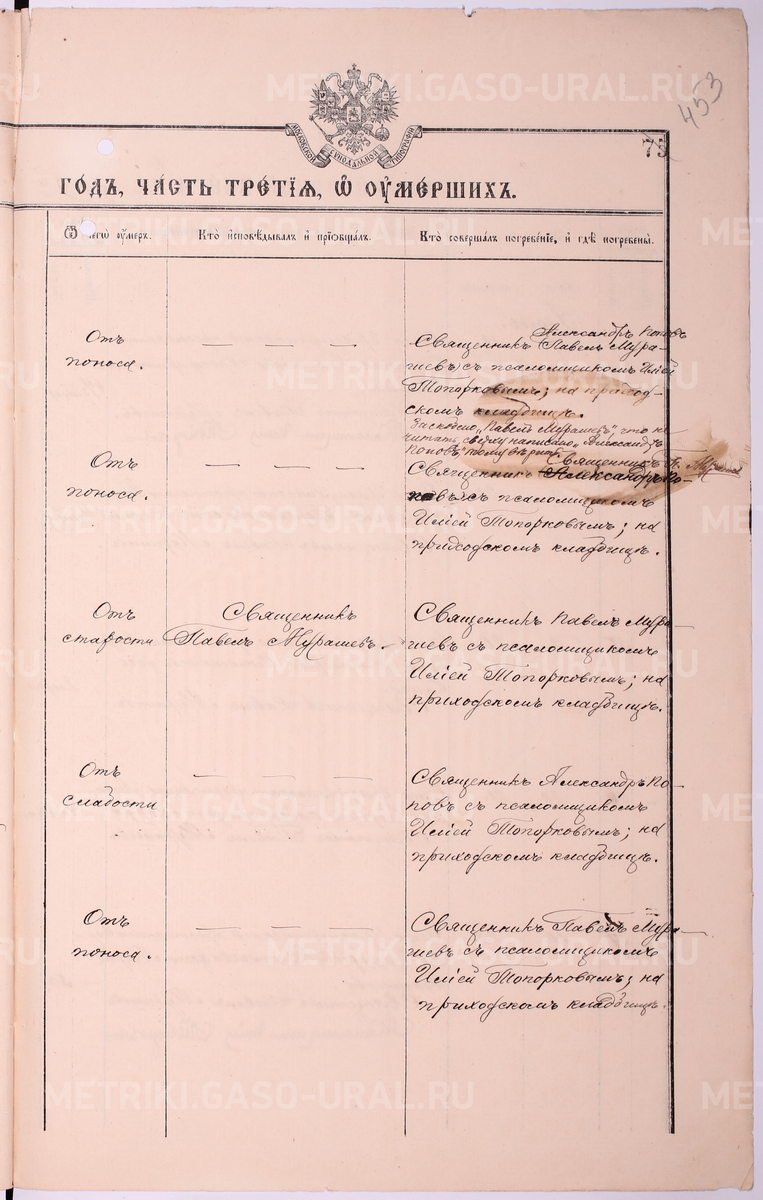 453
75
МОСКОВСКОЙ СѴНОДАЛЬНОЙ ТИПОГРАФІИ
ГОДЪ, ЧАСТЬ ТРЕТІЯ, Ѡ ОУМЕРШИХЪ.
Ѿ чегѡ оумеръ.
Кто исповѣдывалъ и пріобщалъ.
Кто совершалъ погребеніе, и гдѣ погребены.
Отъ
поноса.
— — —
Александръ Поповъ
Священникъ Павелъ Мура-
шевъ съ псаломщикомъ Иліей
Топорковымъ; на приход-
скомъ кладбищѣ.
Заскоблено „Павелъ Мурашевъ", что не
читать, сверху написано „Александръ
Поповъ" тому вѣрить. Священникъ П. Мурашевъ
Отъ
поноса.
— — —
Священникъ Александръ По-
повъ съ псаломщикомъ
Иліей Топорковымъ; на
приходскомъ кладбищѣ.
Отъ
старости
Священникъ
Павелъ Мурашевъ.
Священникъ Павелъ Мура-
шевъ съ псаломщикомъ
Иліей Топорковымъ; на
приходскомъ кладбищѣ.
Отъ
слабости
— — —
Священникъ Александръ По-
повъ съ псаломщикомъ
Иліей Топорковымъ; на
приходскомъ кладбищѣ.
Отъ
поноса.
— — —
Священникъ Павелъ Мура-
шевъ съ псаломщикомъ
Иліей Топорковымъ; на
приходскомъ кладбищѣ.
METRIKI.GASO-URAL.RU